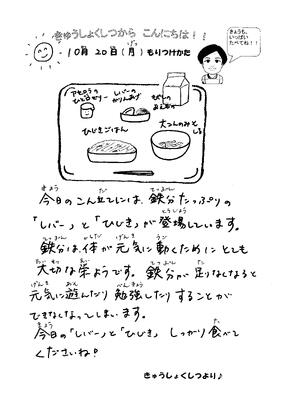 きゅうしょくしつから こんにちは！！
10月20日(月)もりつけかた
きょうも、
いっぱい
たべてね！！
アセロラの
ひとくちゼリー
レバーの
かりんあげ
ひじきごはん
大こんのみそしる
今日のこん立てには、鉄分たっぷりの
「レバー」と「ひじき」が登場しています。
鉄分は、体が元気に動くために とても
大切な栄ようです。鉄分が足りなくなると
元気に遊んだり 勉強したり することが
できなくなってしまいます。
今日の「レバー」と「ひじき」 しっかり食べて
くださいね！
きゅうしょくしつより♪